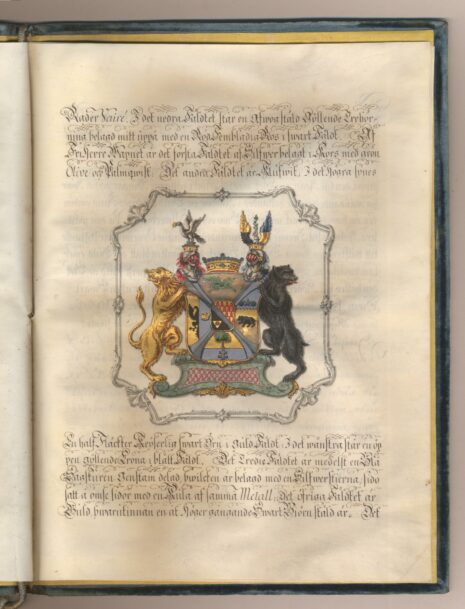 Rader I det nedra Fäldtet står en
ning belagd mitt uppå med en Ros i swart Fäldt. Af
Friherre Wapnet är det första Fäldtet af Silfwer belagt i Kors med grön
Olive och Palmqwist. Det andra Fäldtet är I det högra synes
En half Kejserlig swart Örn i Guld Fäldt. I det wänstra står en öp
pen gyllende Crona i blått Fäldt. Det Tredie Fäldtet är medelst en Blå
delad, hwilcken är belagd med en Silfwerstierna, sido
satt å ömse sidor med en Kula af samma Metall, det öfriga Fäldtet är
Guld, hwarutinnan en åt Höger gångande Swart Björn stäld är. Det